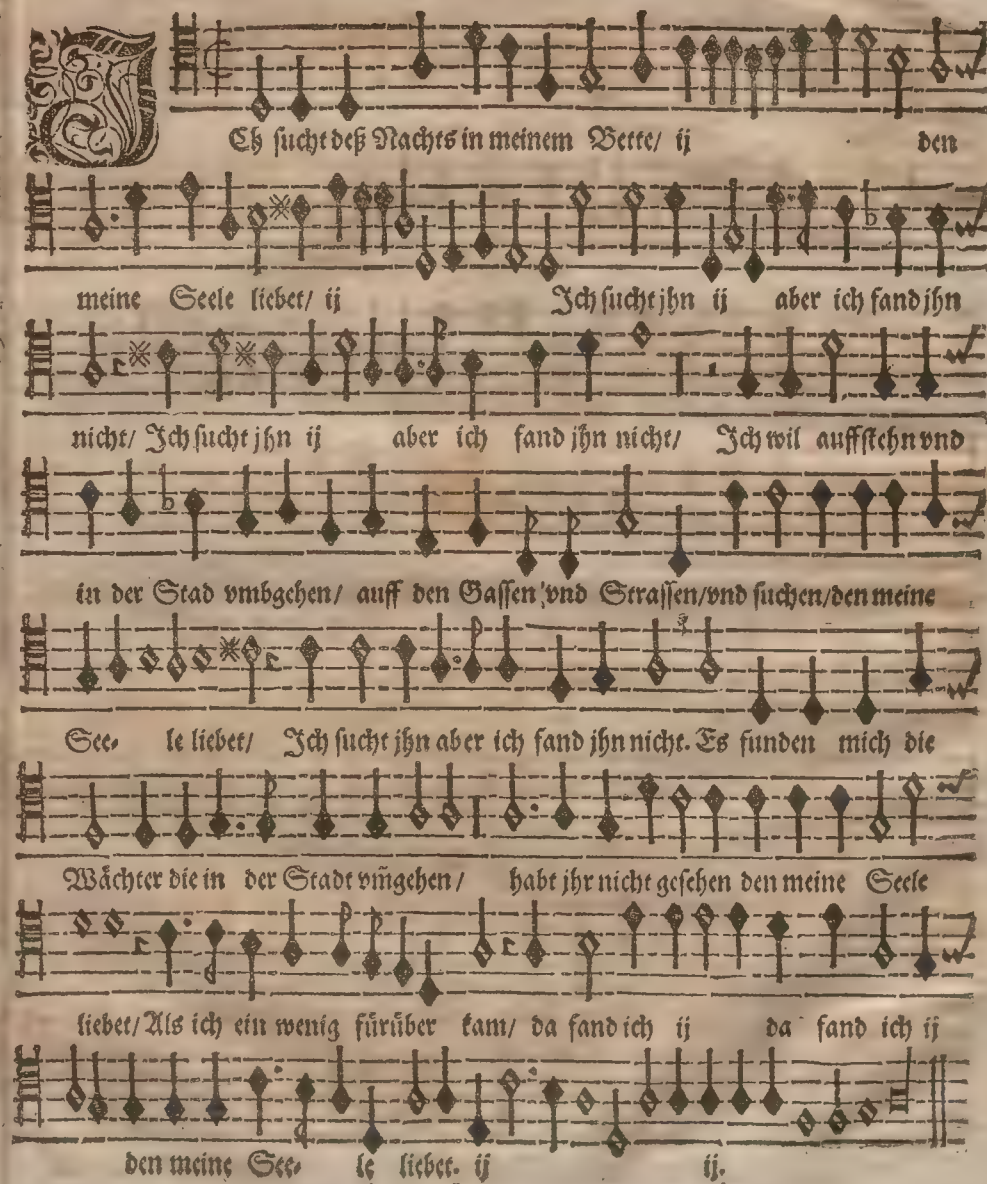 ICh sucht deß Nachts in meinem Bette/ ij den
meine Seele liebet/ ij Ich sucht jhn ij aber ich fand jhn
nicht/ Ich sucht jhn ij aber ich fand jhn nicht/ Ich wil auffstehn vnd
in der Stad vmbgehen/ auff den Gassen vnd Strassen/vnd suchen/den meine
See- le liebet/ Ich sucht jhn aber ich fand jhn nicht. Es funden mich die
Wächter die in der Stadt vm̃gehen/ habt jhr nicht gesehen den meine Seele
liebet/Als ich ein wenig fürüber kam/ da fand ich ij da fand ich ij
den meine See- le liebet. ij ij.